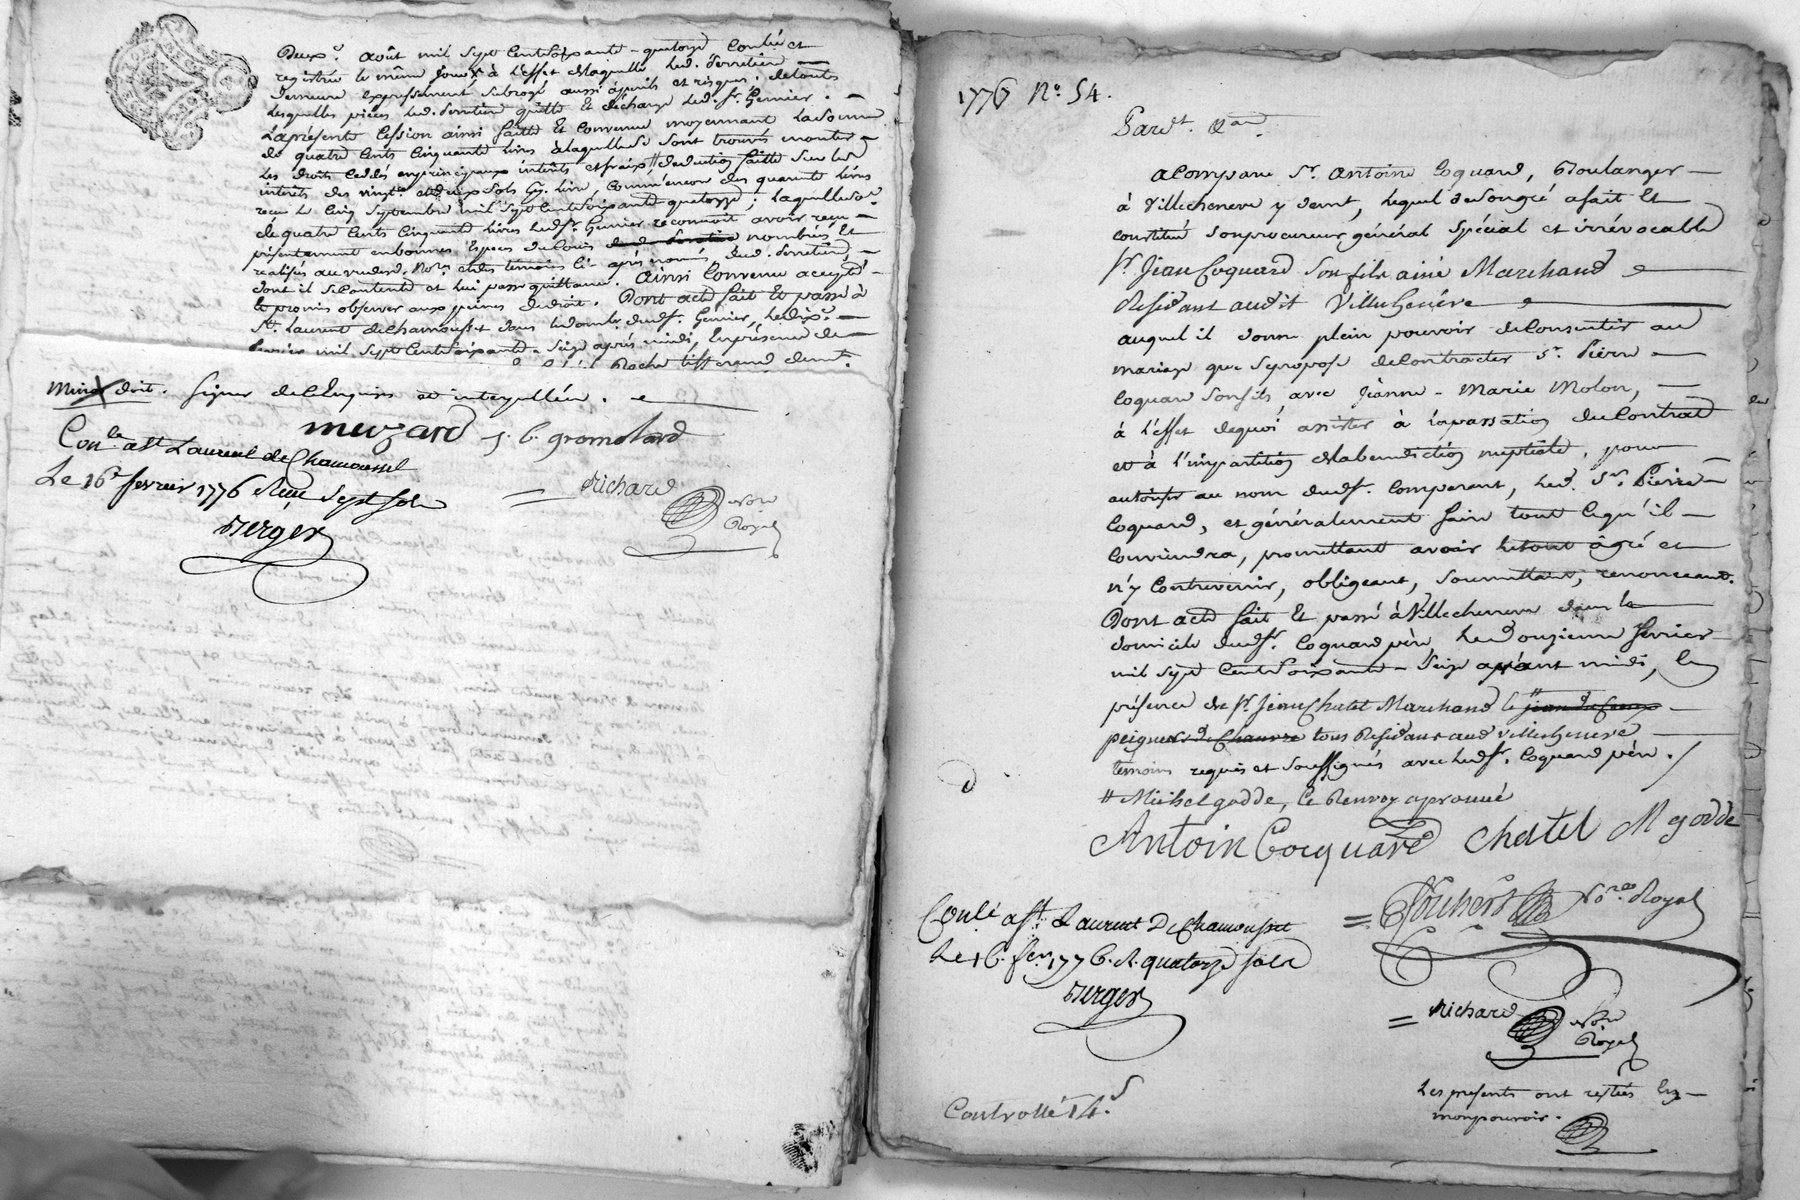 Deux.e août mil sept cent soixante-quatorze Conlée et
registrée le même jour à l'effet de laquelle led. Ferretière
demeure expressement subrogé aussi à périls et risques. de toutes
lesquelles pièces led. Ferretière quitte et décharge led. Sr. Gernier.
La présente Cession ainsi faitte et Convenue moyennant la somme
de quatre Cents Cinquante livres à laquelle se sont trouvés monter
les droits Cédés en principaux intérêts et fraix, // deduction faitte sur les
intérêts des vingt.e et deux sols
reçu le Cinq Septembre mil Sept Cent Soixante quatorze; laquelle so.e
de quatre Cents Cinquante livres led. Sr. Gernier reconnoit avoir reçu
présentement en bonnes Especes de Louis nombrés et
realisés au vu desd. Nores et des temoins Ci-après nommés, dud. Ferretière,
dont il se Contente et lui passe quittance. Ainsi Convenu accepté
et promis observer aux peines de droit. Dont acte fait et passé à
St. Laurent de Chamousset dans le domle. dud. Sr. Gernier, le dix.e
fevrier mil Sept Cent Soixante-Seize après midi, En présence de
Roche tisserand demt.
doit. Signer de Ce Enquises et interpellées.
meuzard J. C. gromolard
Con.lé a St Laurent de Chamousset
Le 16e fevrier 1776 Reçu Sept sols
Berger
Richard Nore
Royal
1776 No. 54.
Pardt. &a.
a Comparu Sr. Antoine Coquard, Boulanger
à Villecheneve y demt, lequel de son gré a fait Et
constitué son procureur général Spécial et irrévocable
Sr. Jean Coquard Son fils ainé Marchand
Residant audit Villecheneve
auquel il donne plein pouvoir de Consentir au
mariage que Se propose de Contracter Sr. Pierre
Coquard Son fils avec Jeanne-Marie Molon,
à l'Effet de quoi assister à la passation du Contrat
et à l'impartition de la benediction nuptiale, pour
autoriser au nom dud. Sr. Comparant, led. Sr. Pierre
Coquard, et généralement faire tout Ce qu'il
Conviendra, promettant avoir le tout âgréé et
n'y Contrevenir, obligeant, Soumettant, renonceant.
Dont acte fait Et passé à Villecheneve dans le
domicile dud. Sr. Coquard père, Le Douzieme fevrier
mil Sept Cent Soixante-Seize avant midi, En
présence de Sr. Jean Chatel Marchand Et // jean
peigneur de Chanvre tous Residant aud Villecheneve
temoins requis et soussignés avec led. Sr. Coquard père. /
// Michel godde, Ce Renvoy aprouvé
Antoin Cocquard Chatel M godde
Nore. Royal
Conlé a St. Laurent De Chamousset
Le 16. fer. 1776. R. quatorze sols
Berger
Richard Nore
Royal
Controllé 14.s
Les presents ont restées En
mon pouvoir.